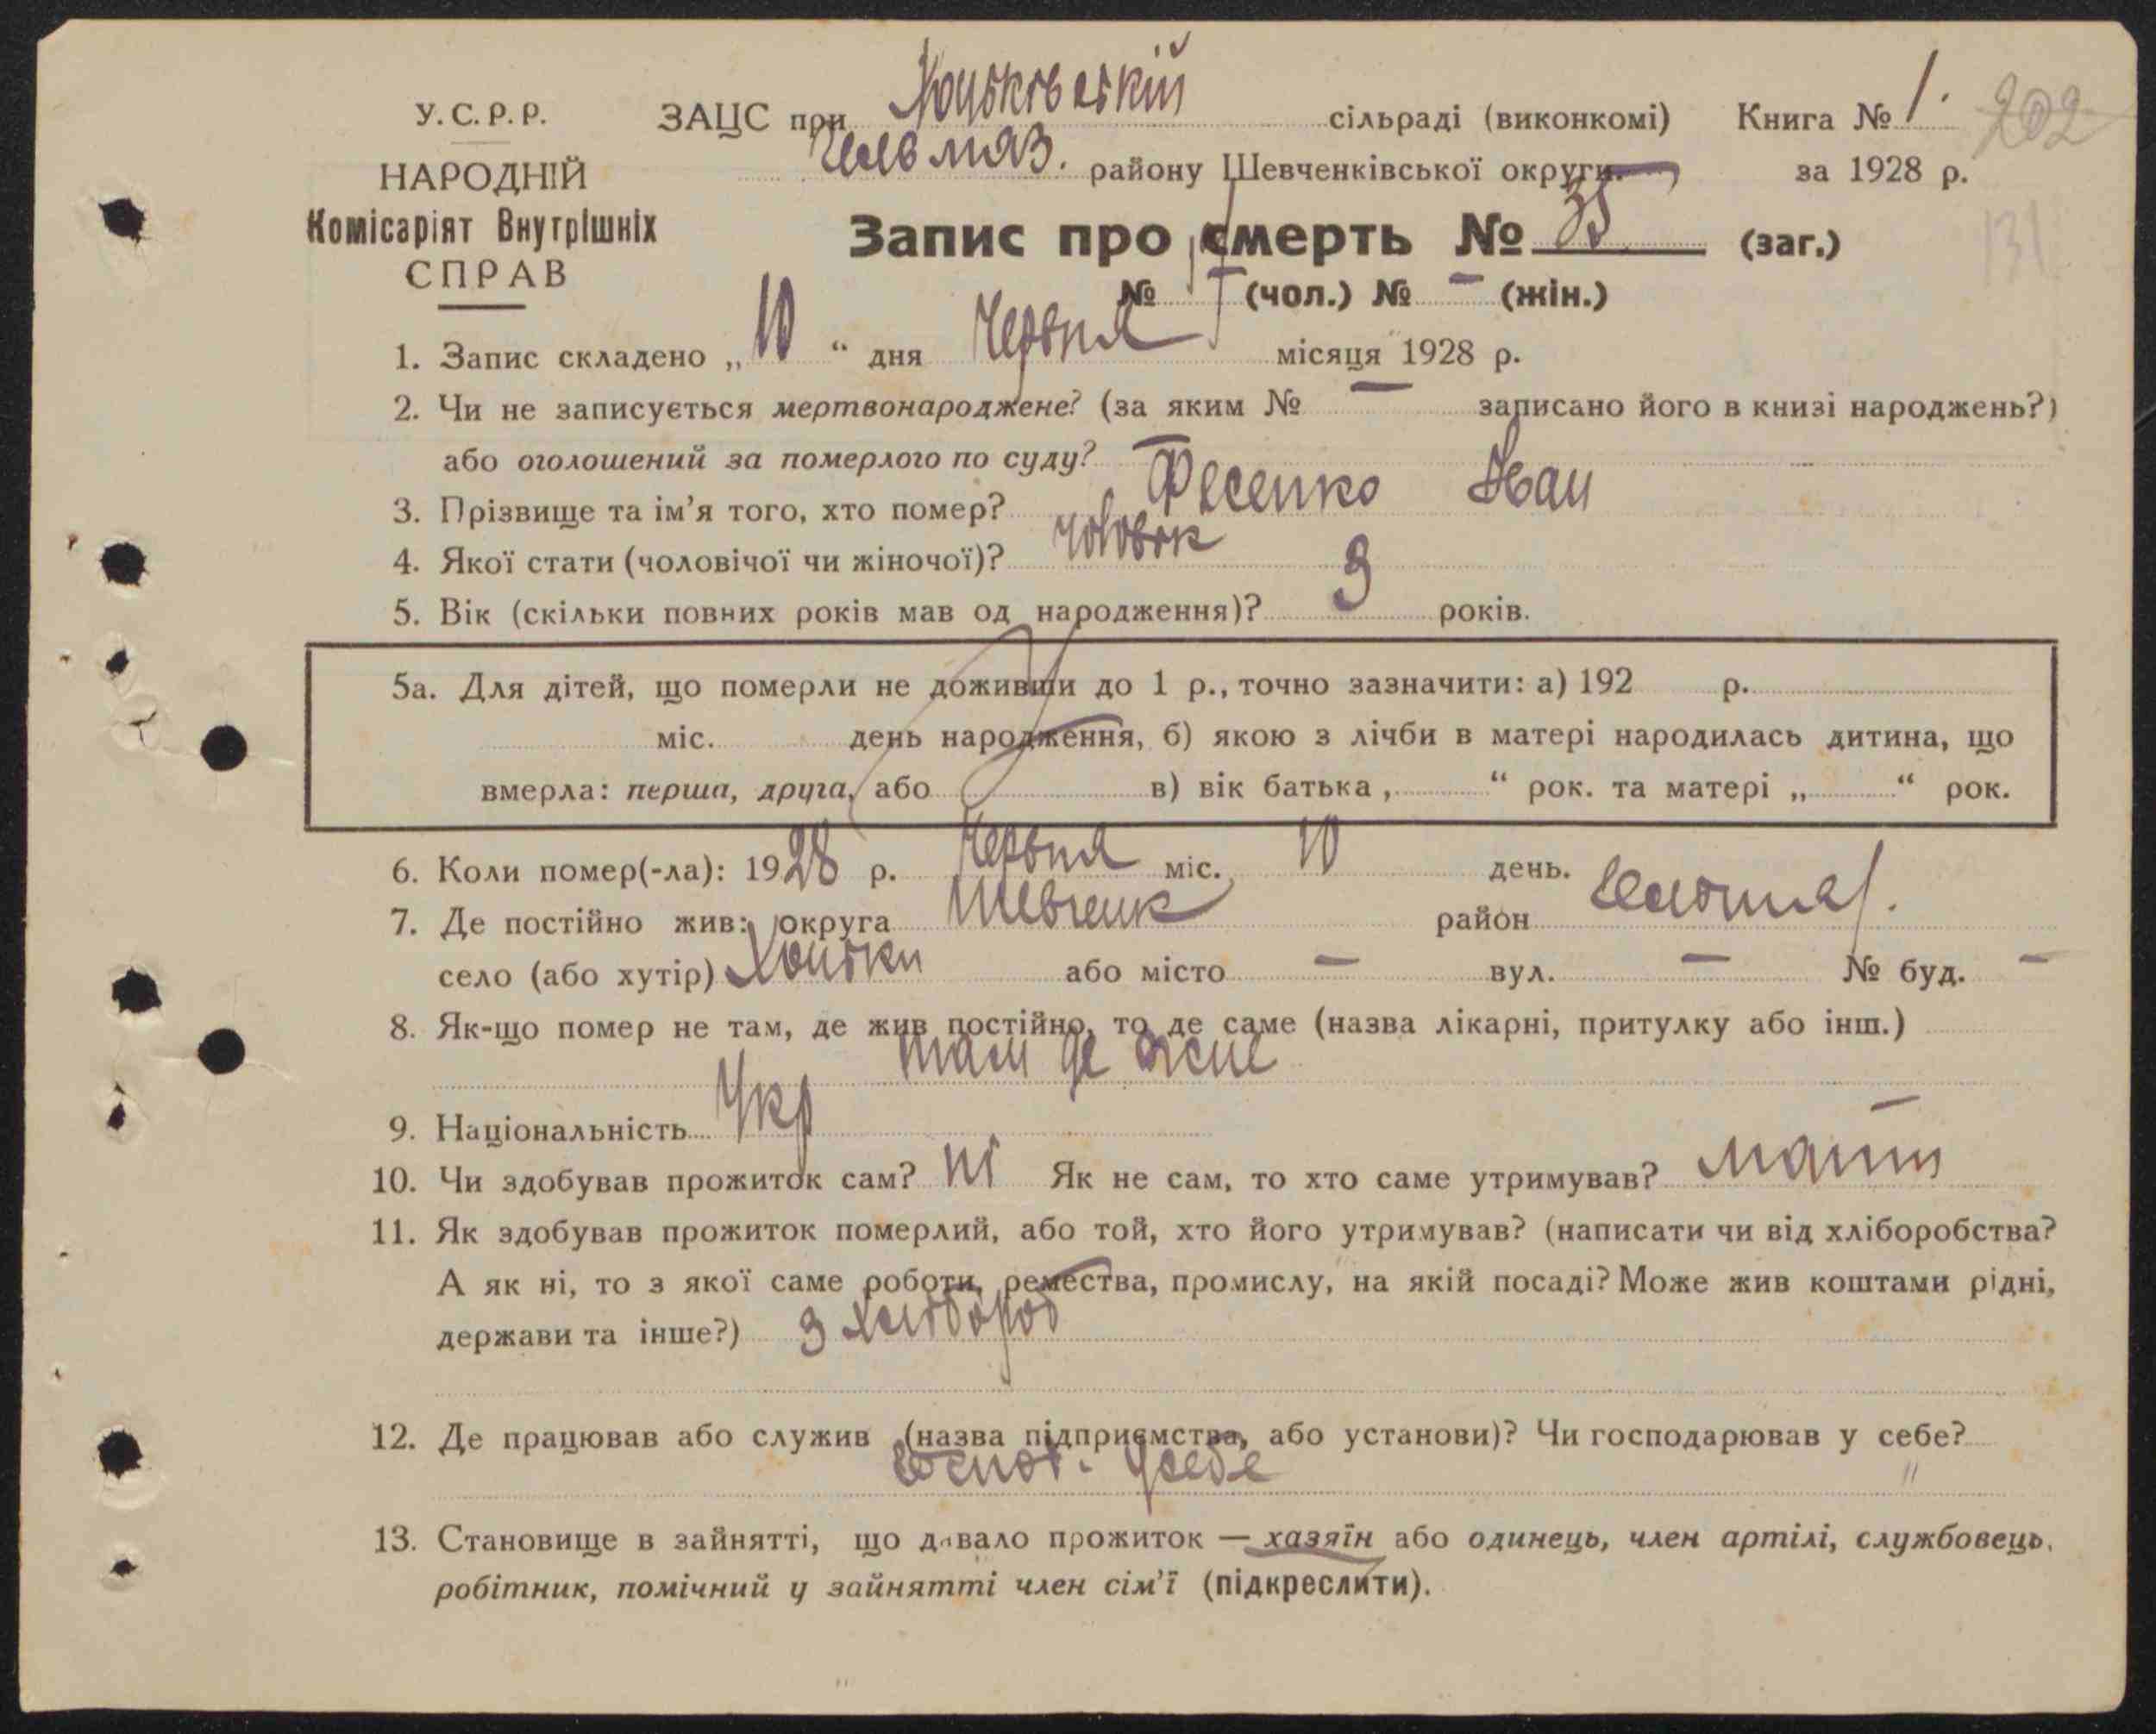 У.С.Р.Р.
НАРОДНІЙ
Комісаріят Внутрішніх
СПРАВ
ЗАЦС при Хоцьківській сільраді (виконкомі) Книга № 1. 202
району Шевченківської округи. за 1928 р.
Запис про смерть № 35 (заг.)
131
№ (чол.) № — (жін.)
1. Запис складено „ 10 “ дня Червня місяця 1928 р.
2. Чи не записується мертвонароджене? (за яким № — записано його в книзі народжень?)
або оголошений за померлого по суду? —
3. Прізвище та ім'я того, хто помер? Фесенко Іван
4. Якої стати (чоловічої чи жіночої)? чоловік
5. Вік (скільки повних років мав од народження)? 3 років.
5а. Для дітей, що померли не доживши до 1 р., точно зазначити: а) 192 р.
міс. день народження, б) якою з лічби в матері народилась дитина, що
вмерла: перша, друга, або в) вік батька „ “ рок. та матері „ “ рок.
6. Коли помер(-ла): 1928 р. Червня міс. 10 день.
7. Де постійно жив: округа Шевченк район
село (або хутір) Хоцьки або місто — вул. — № буд. —
8. Як-що помер не там, де жив постійно, то де саме (назва лікарні, притулку або інш.)
там де жив
9. Національність Укр
10. Чи здобував прожиток сам? ні Як не сам, то хто саме утримував? мати
11. Як здобував прожиток померлий, або той, хто його утримував? (написати чи від хліборобства?
А як ні, то з якої саме роботи, ремества, промислу, на якій посаді? Може жив коштами рідні,
держави та інше?) З хлібороб
12. Де працював або служив (назва підприємства, або установи)? Чи господарював у себе?
Господ. у себе
13. Становище в зайнятті, що давало прожиток — хазяїн або одинець, член артілі, службовець,
робітник, помічний у зайнятті член сім'ї (підкреслити).